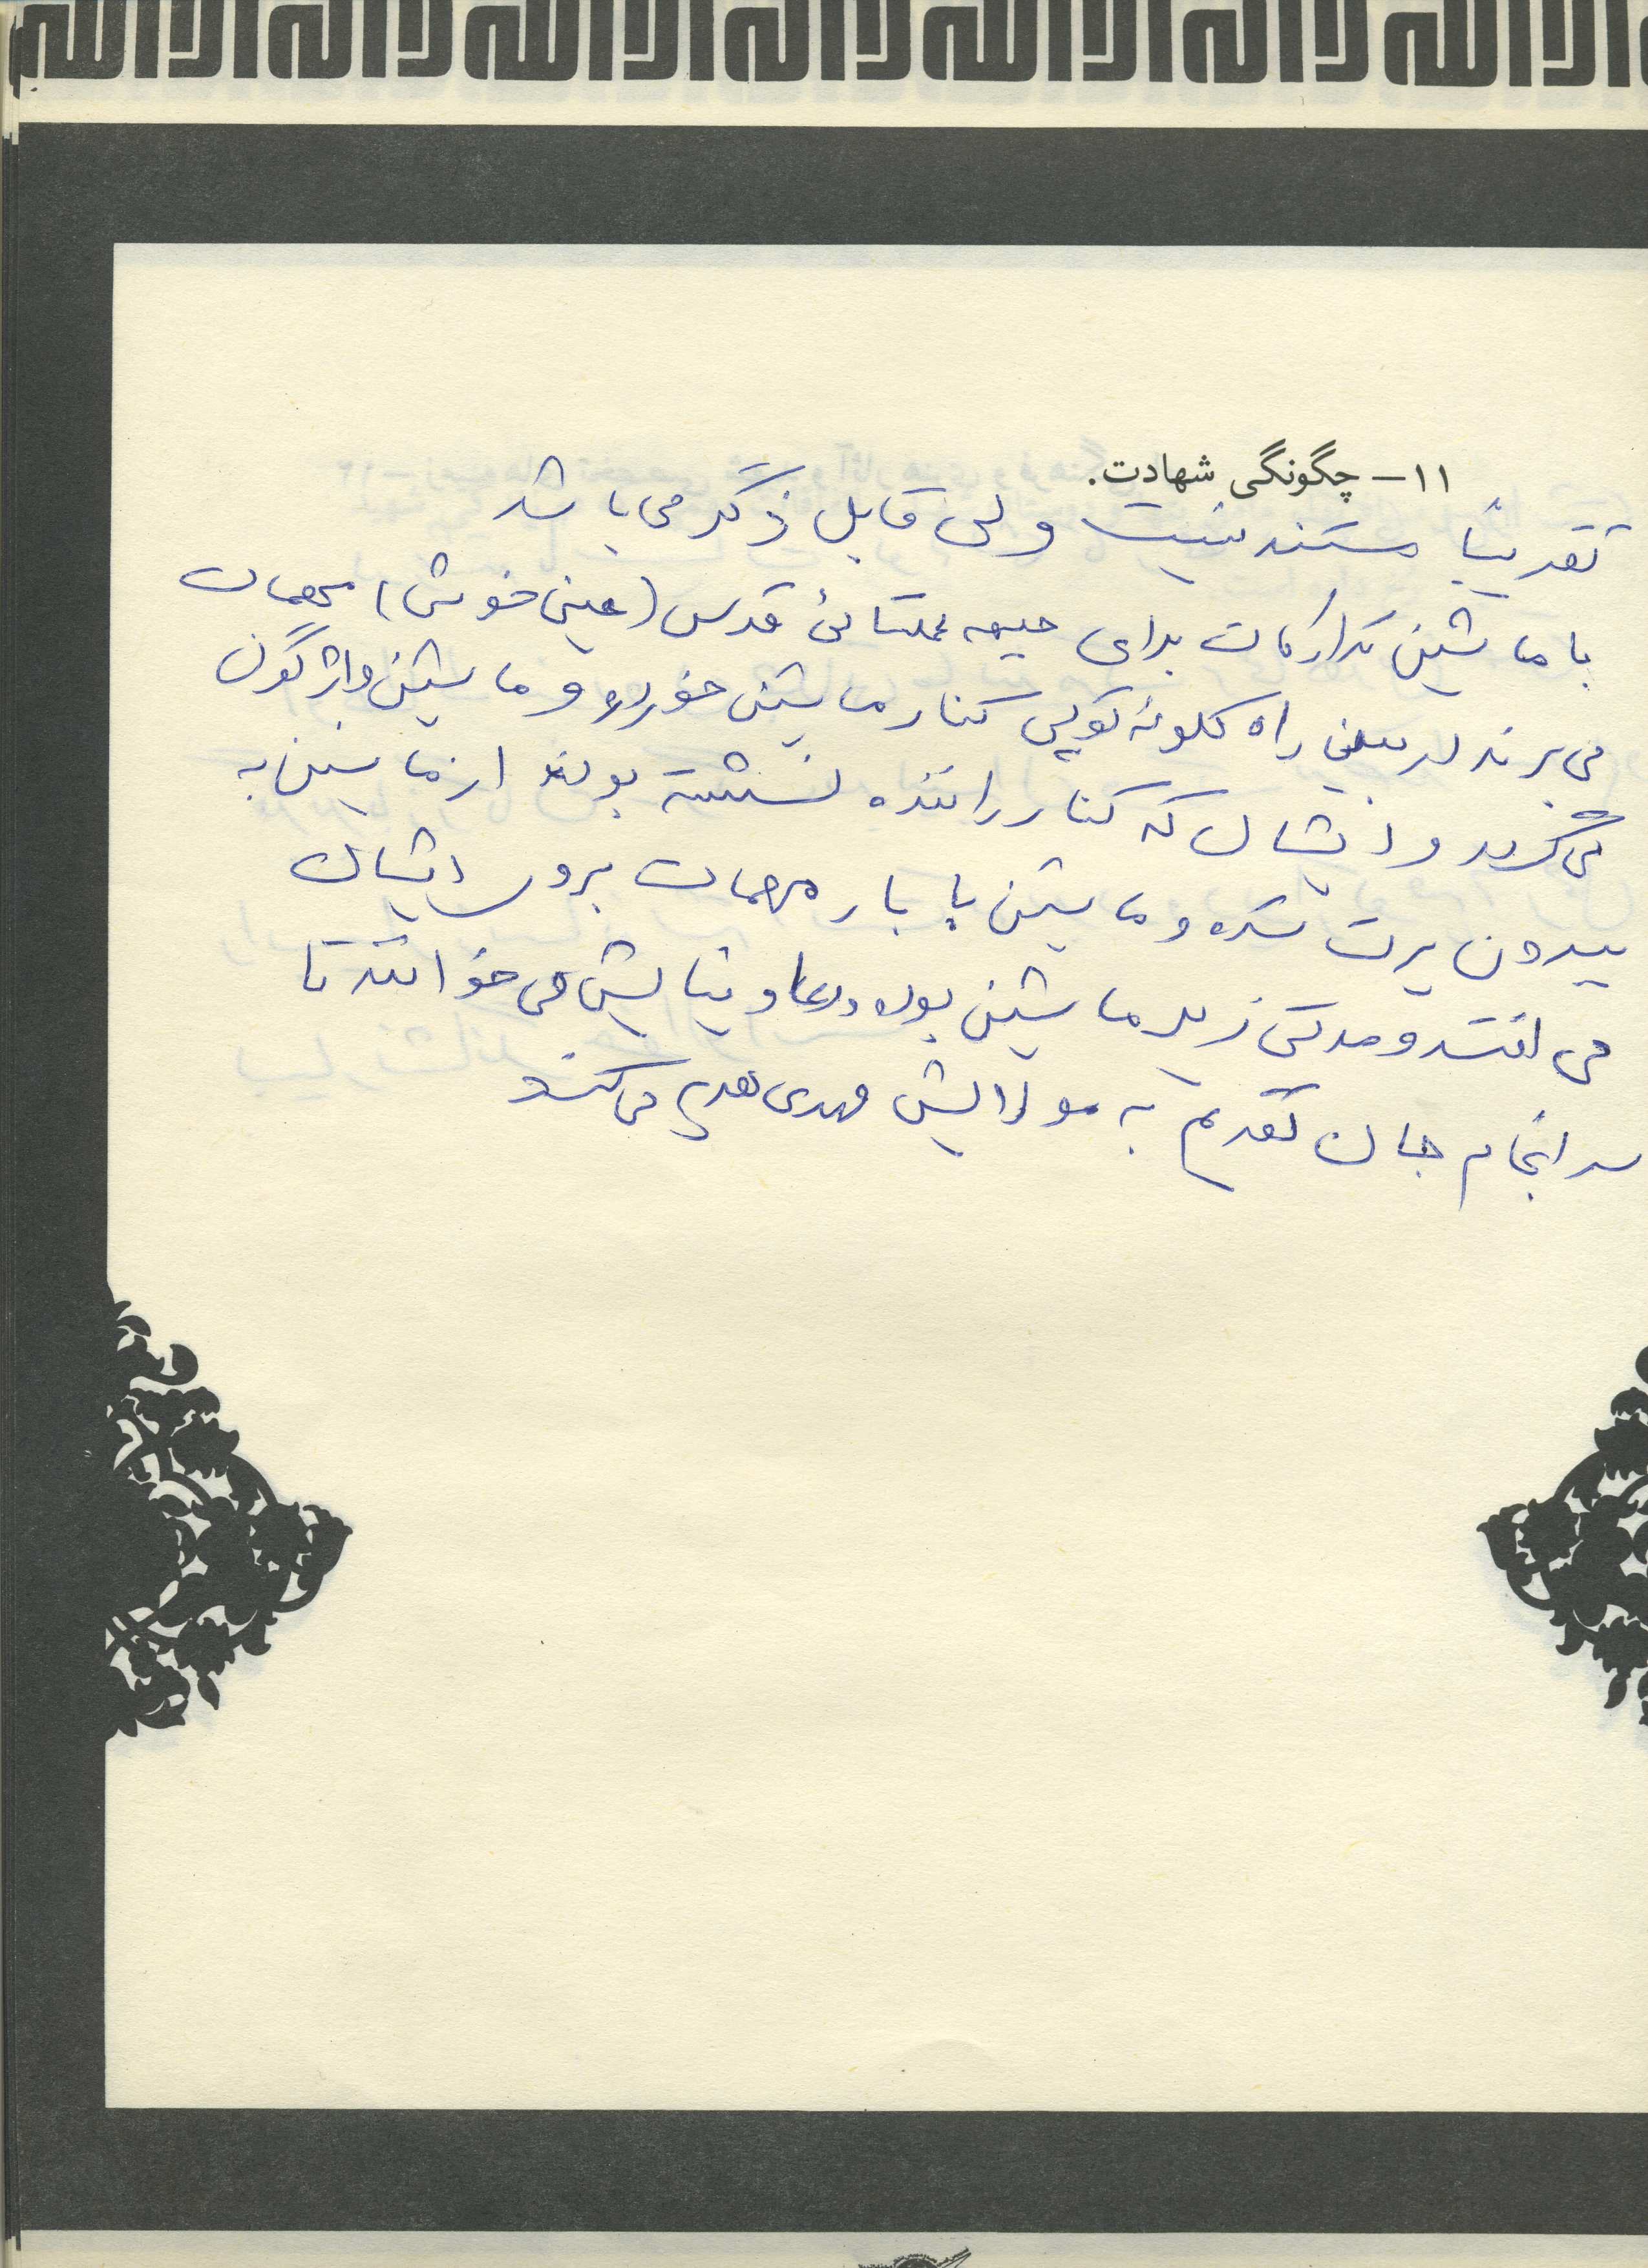 لااله الاالله لااله الاالله لااله الاالله لااله الاالله
۱۱- چگونگی شهادت.
تقریباً مستند نیست ولی قابل ذکر می باشد
با ماشین تدارکات برای جبهه عملیاتی قدس (عین خوش) مهمات
می برند در بین راه گلوله توپی کنار ماشین خورده و ماشین واژگون
می گردد و ایشان که کنار راننده نشسته بودند از ماشین به
بیرون پرت شده و ماشین با بار مهمات بروی ایشان
می افتد و مدتی زیر ماشین بوده و دعا و نیایش می خوانند تا
سرانجام جان تقدیم به مولایش مهدی می کند